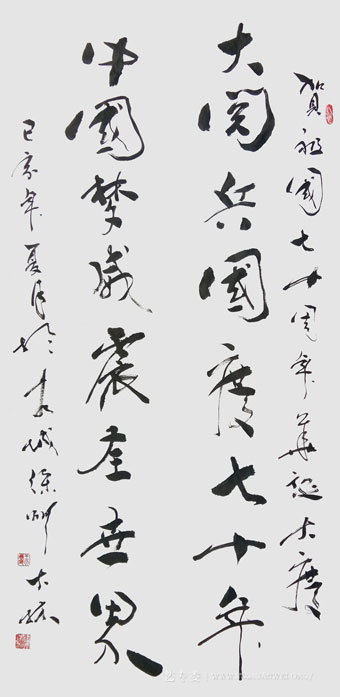 賀祖國七十周年華誕大慶
大閱兵國慶七十年
中國夢威震全世界
己亥年夏月於城徐州